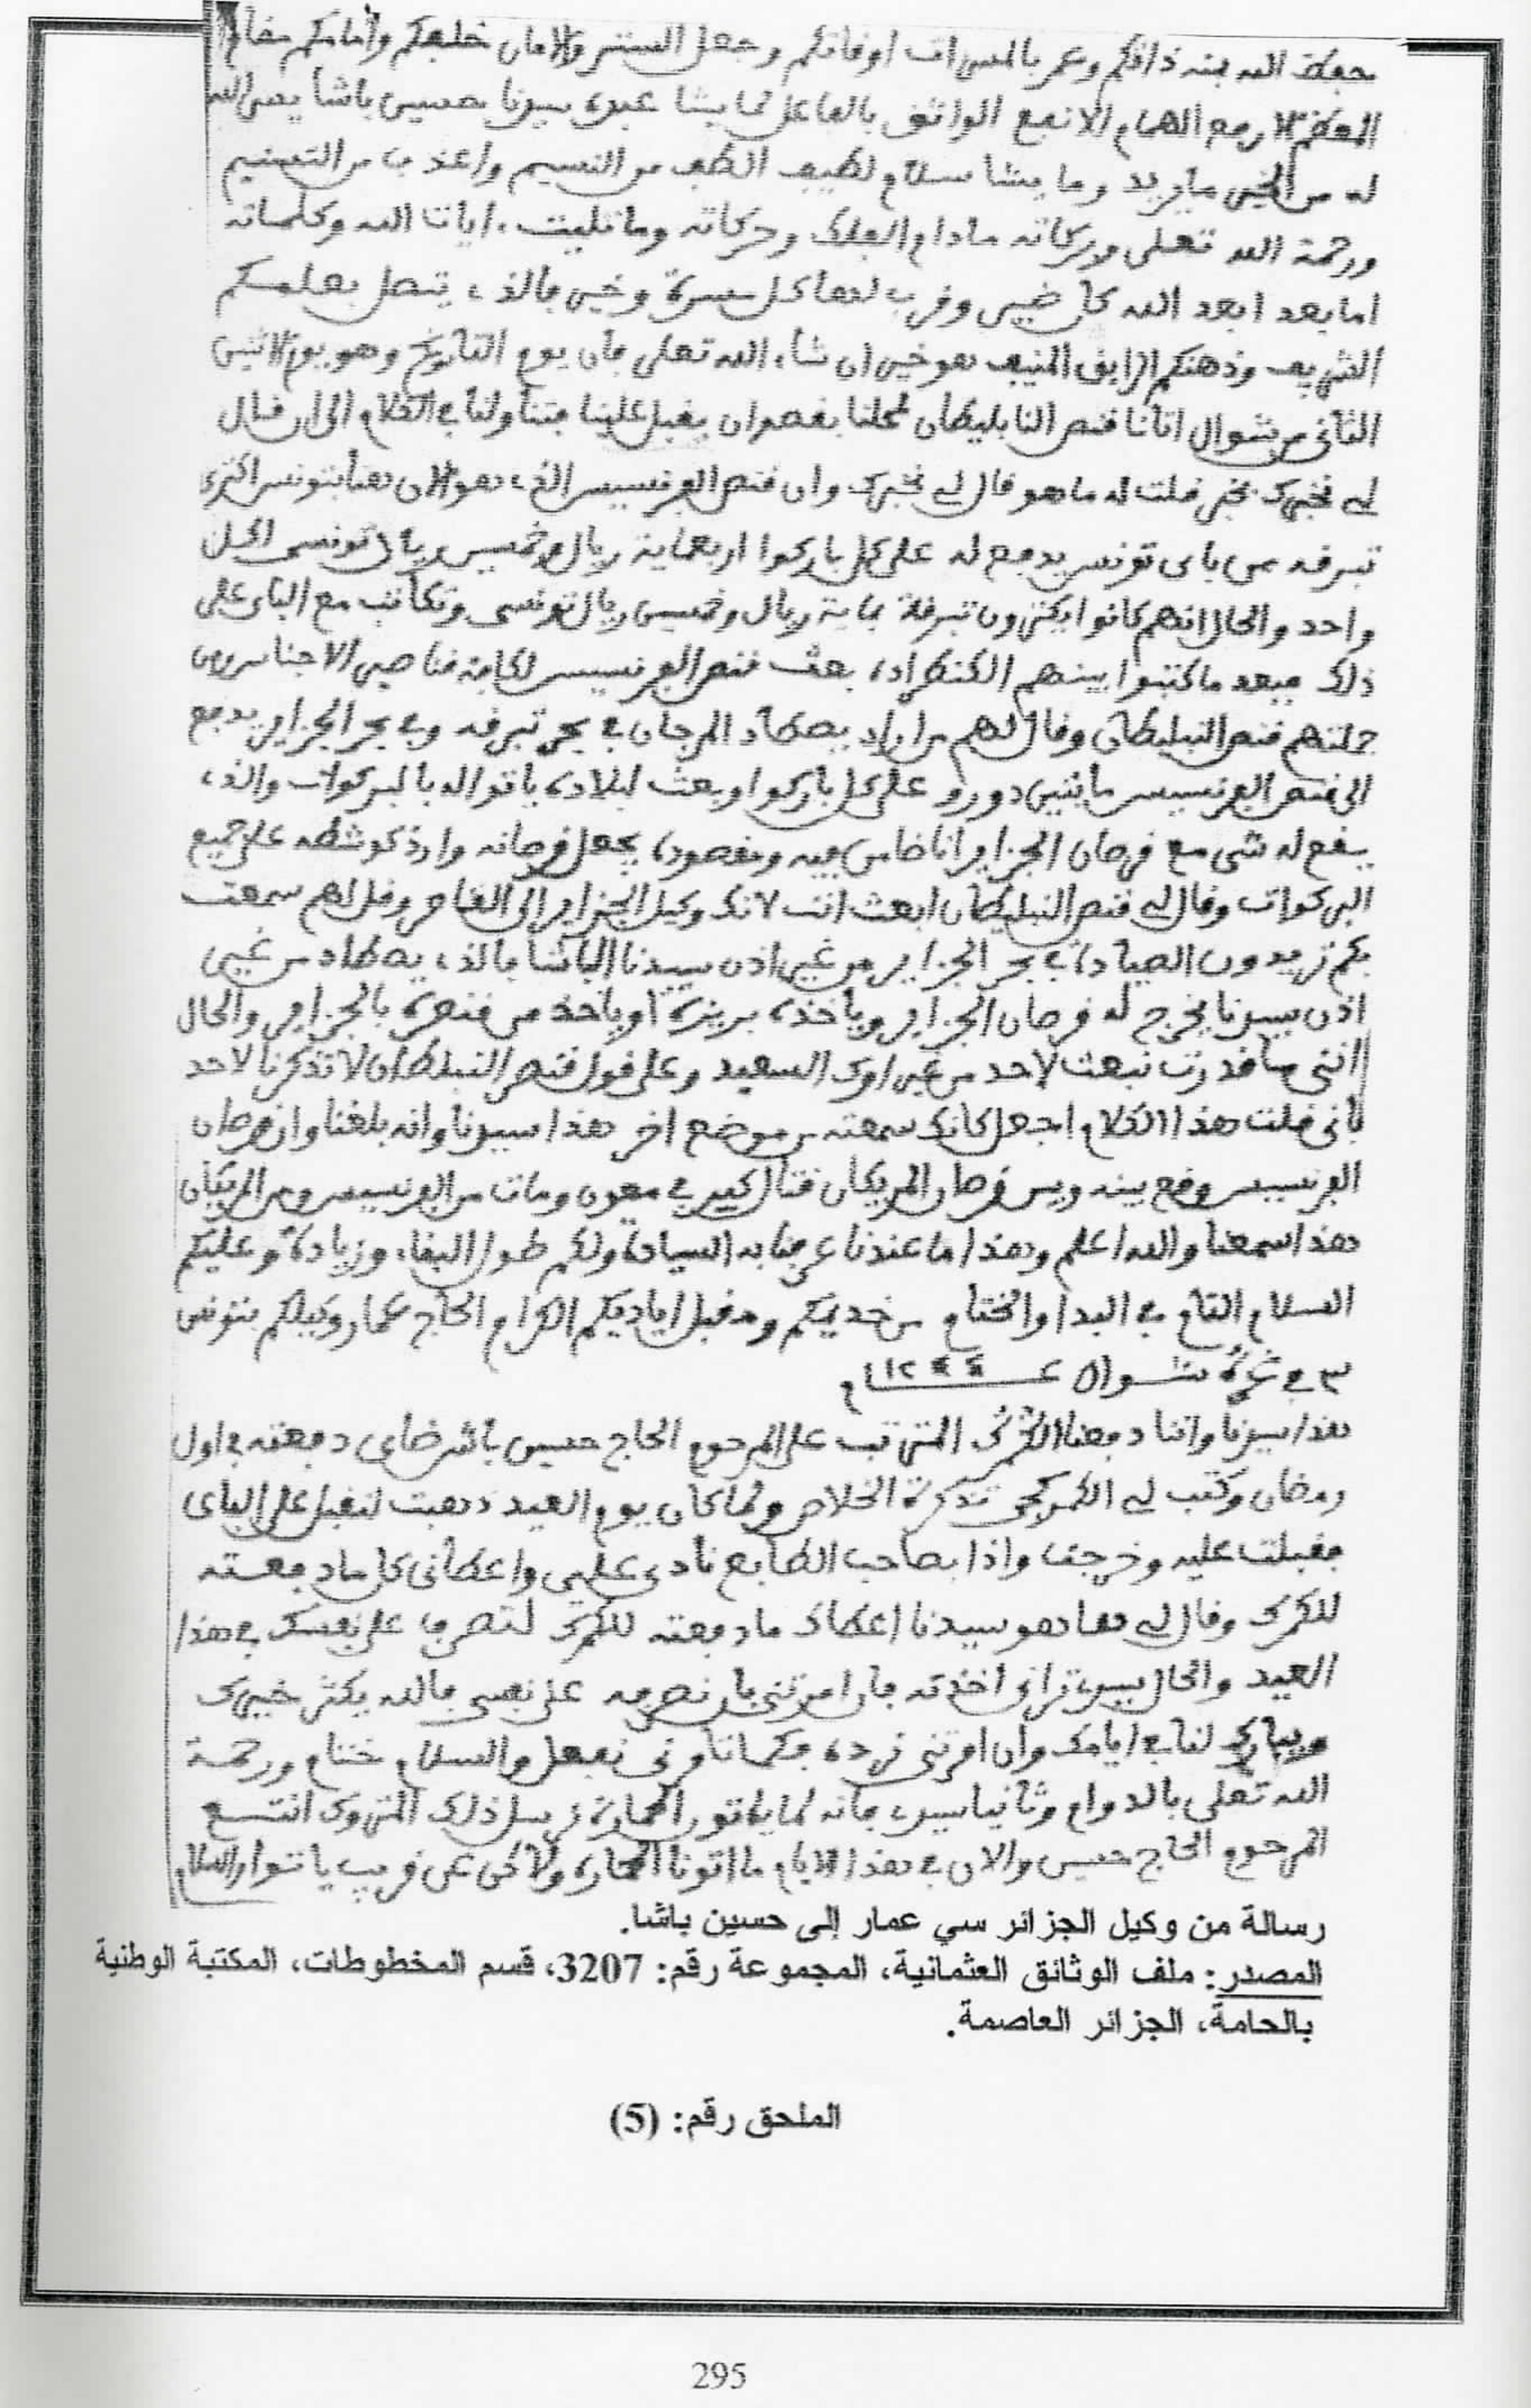 حفظ الله بمنه ذاتكم وعمر بالمسرات اوقاتكم وجعل الستر والامان خلفكم وأمامكم مقام
المعظم الارفع الهمام الانفع الواثق بالفاعل لما يشا عبده سيدنا حسين باشا يسر الله
له من الخير ما يريد وما يشا سلام لطيف الطف من النسيم واعذب من التسنيم
ورحمة الله تعلى وبركاته مادام الفلك وحركاته وما تليت ءايات الله وكلماته
اما بعد ابعد الله كل ضير وقرب لنا كل مسرة وخير فالذي يتصل بعلمكم
الشريف وذهنكم الرايق المنيف هو خير ان شاء الله تعلى فان يوم التأريخ وهو يوم الاثنين
الثاني من شوال اتانا قنصر النابليطان لمحلنا بقصد ان يقبل علينا فتناولنا في الكلام الى ان قال
لي نخبرك بخبر قلت له ما هو قال لي نخبرك وان قنصر الفرنسيس الذي هو الان هنا بتونس اكترى
تبرقه من باى تونس يدفع له على كل باركوا اربعماية ريال وخمسين ريال تونسى الحل
واحد والحال انهم كانوا يكترون تبرقة بماية ريال وخمسين ريال تونسى وتكاتب مع الباى على
ذلك فبعد ما كتبوا بينهم الكنطراد، بعث قنصر الفرنسيس لكافة قناصر الاجناس ومن
جملتهم قنصر النبليطان وقال لهم من اراد يصطاد المرجان في بحر تبرقه وفي بحر الجزاير يدفع
الى قنصر الفرنسيس مايتين دورو على كل باركوا وبعث لبلاده ياتوا له بالبركوات والذي
يقع له شى مع قرصان الجزاير انا ضامن فيه ومقصوده يجعل قرصانه واردكوشطه على جميع
البركوات وقال لي قنصر النبليطان ابعث انت لانك وكيل الجزاير الى القناصر وقل لهم سمعت
بكم تريدون الصيادة في بحر الجزاير من غير اذن سيدنا الباشا فالذي يصطاد من غير
اذن سيدنا يخرج له قرصان الجزاير وياخذه بريزة او ياخذ من قنصره بالجزاير والحال
انني ما قدرت نبعث لاحد من غير امرك السعيد وعلى قول قنصر النبلطان لا تذكرنا لاحد
بأني قلت هذا الكلام اجعل كانك سمعته من موضع اخر هذا سيدنا وانه بلغنا وان قرصان
الفرنسيس وقع بينه وبين قرصان المريكان قتال كبير في معون ومات من الفرنسيس ومن المريكان
هذا سمعنا والله اعلم وهذا ما عندنا عرفنا به السيادة ولكم طول البقاء وزيادة وعليكم
السلام التام في البدا والختام من خديمكم ومقبل اياديكم الكرام الحاج عمار وكيلكم بتونس
٣ في غرة شوال عـــام ١٢٤٤
هذا سيدنا واننا دفعنا الكمرك المترتب على المرحوم الحاج حسين باش خاى دفعته في اول
رمضان وكتب لي الكمركجى تذكرة الخلاص ولما كان يوم العيد ذهبت لنقبل على الباى
فقبلت عليه وخرجت واذا بصاحب الطابع نادى علي واعطانى كل ما دفعته
للكمرك وقال لي ها هو سيدنا اعطاك ما دفعته للكمرك لتصرفه على نفسك في هذا
العيد والحال سيدي تراني اخذته فان امرتني بأن نصرفه على نفسي فالله يكثر خيرك
ويبارك لنا في ايامك وان امرتني نرده فكما تامرني نفعل والسلام ختام ورحمة
الله تعلى بالدوام وثانيا سيدي فانه لما ياتوا الحمارة نرسل ذلك المتروك انتسع
المرحوم الحاج حسين والان في هذا الايام ما اتونا الحمارة ولاكن عن قريب ياتوا والسلام
رسالة من وكيل الجزائر سي عمار إلى حسين باشا.
المصدر: ملف الوثائق العثمانية، المجموعة رقم: 3207، قسم المخطوطات، المكتبة الوطنية
بالحامة، الجزائر العاصمة.
الملحق رقم: (5)
295